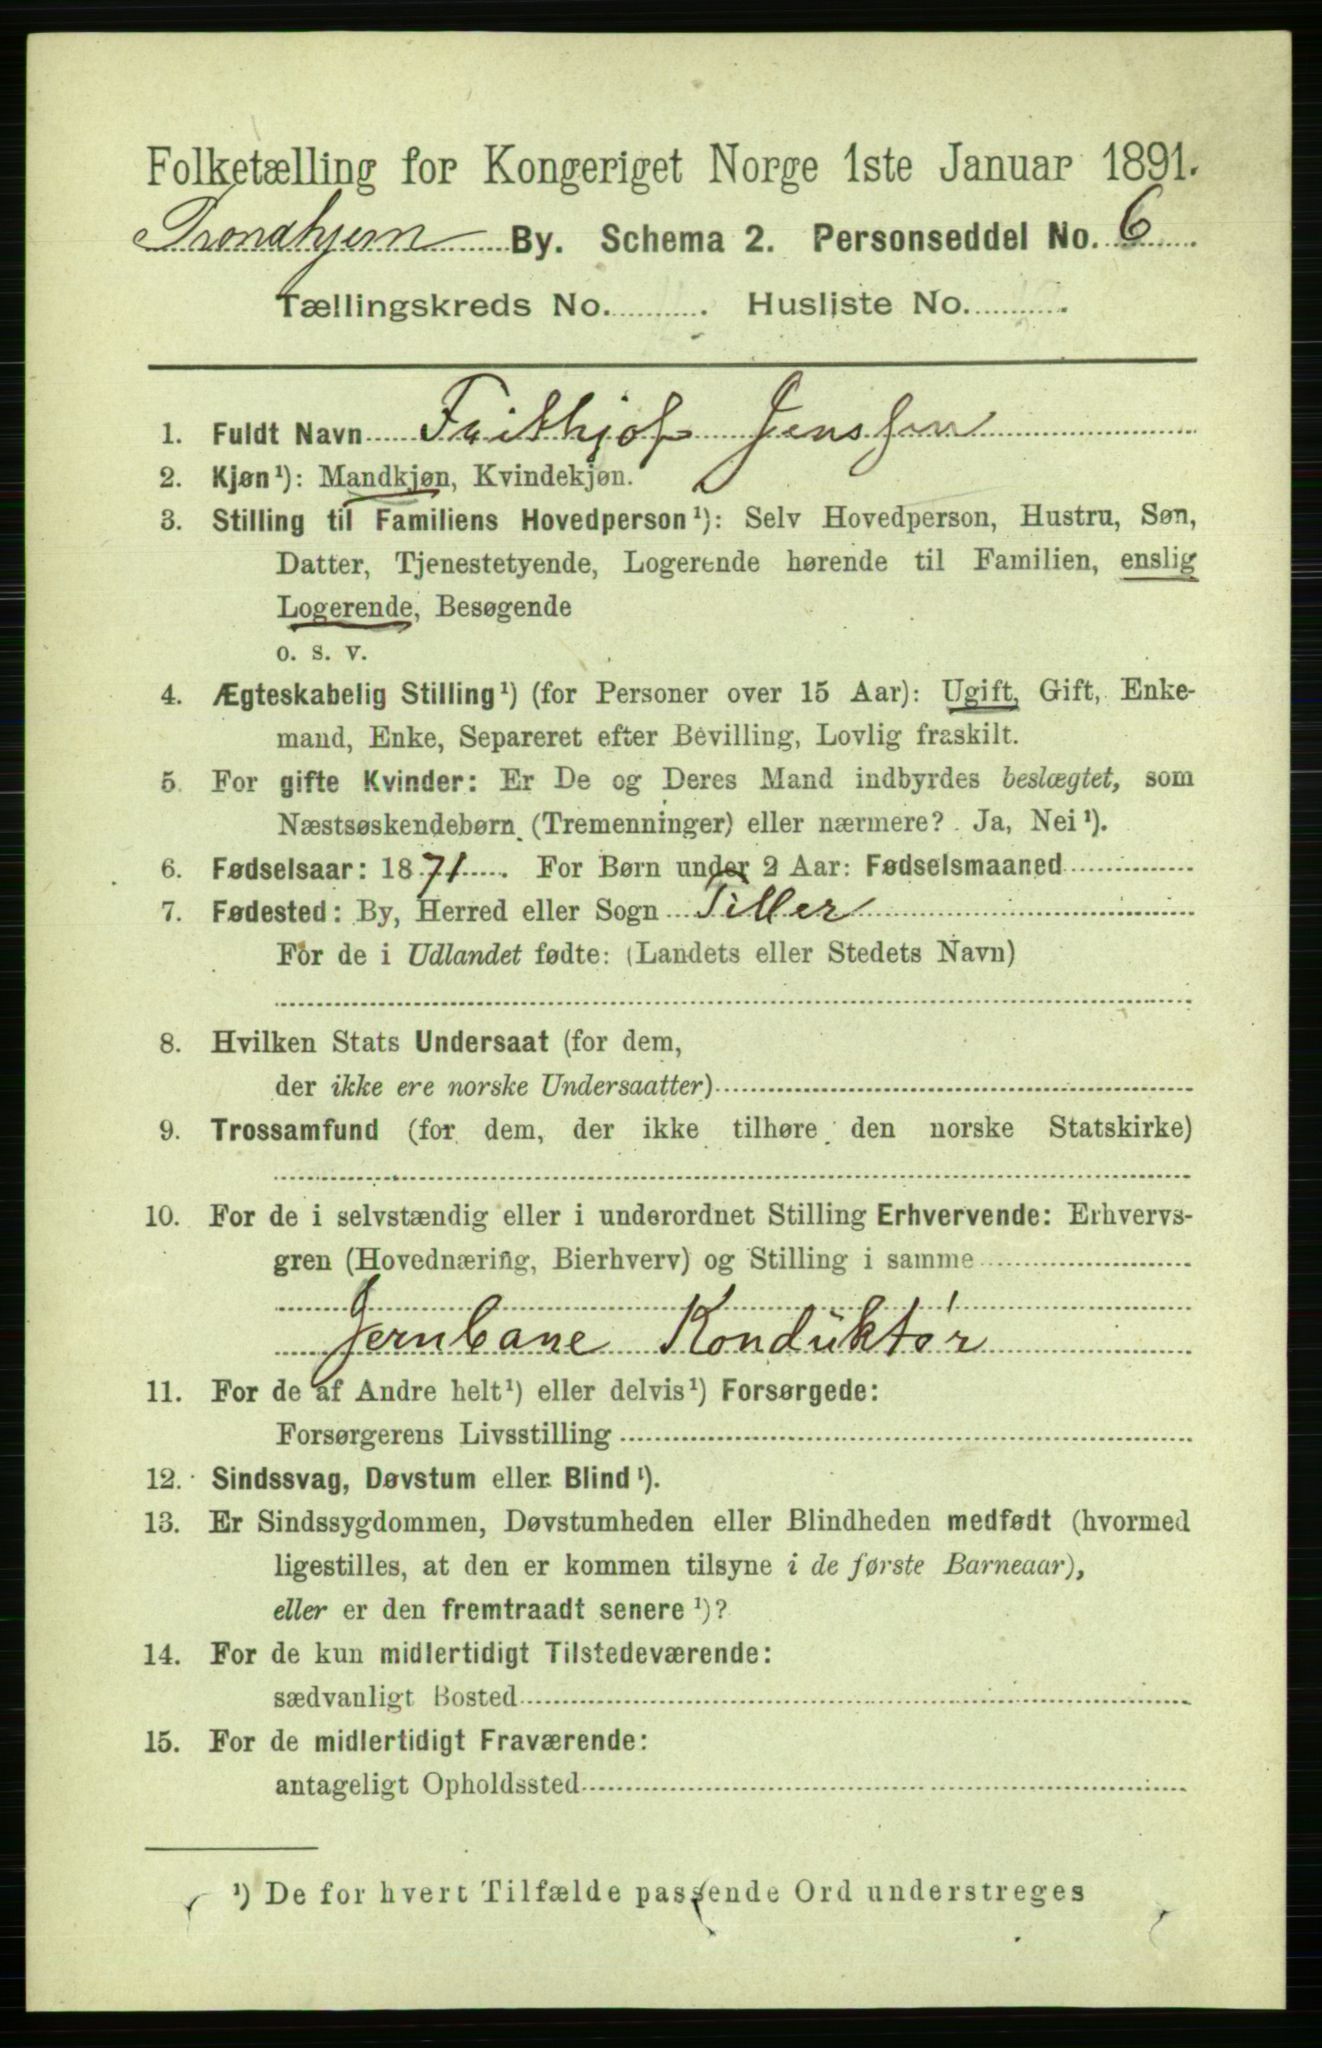 Folketælling for Kongeriget Norge 1ste Januar 1891.
Trondhjem By. Schema 2. Personseddel No. 6
Tællingskreds No. . Husliste No. .
1. Fuldt Navn Frithjof Jenssen
2. Kjøn¹): Mandkjøn, Kvindekjøn.
3. Stilling til Familiens Hovedperson¹): Selv Hovedperson, Hustru, Søn,
Datter, Tjenestetyende, Logerende hørende til Familien, enslig
Logerende, Besøgende
o. s. v.
4. Ægteskabelig Stilling¹) (for Personer over 15 Aar): Ugift, Gift, Enke-
mand, Enke, Separeret efter Bevilling, Lovlig fraskilt.
5 For gifte Kvinder: Er De og Deres Mand indbyrdes beslægtet, som
Næstsøskendebørn (Tremenninger) eller nærmere? Ja, Nei¹).
6. Fødselsaar: 1871. For Børn under 2 Aar: Fødselsmaaned
7. Fødested: By, Herred eller Sogn Tiller
For de i Udlandet fødte: (Landets eller Stedets Navn)
8. Hvilken Stats Undersaat (for dem,
der ikke ere norske Undersaatter)
9. Trossamfund (for dem, der ikke tilhøre den norske Statskirke)
10. For de i selvstændig eller i underordnet Stilling Erhvervende: Erhvervs-
gren (Hovednæring, Bierhverv) og Stilling i samme
Jernbane Konduktør
11. For de af Andre helt¹) eller delvis¹) Forsørgede:
Forsørgerens Livsstilling
12. Sindssvag, Døvstum eller Blind¹).
13. Er Sindssygdommen, Døvstumheden eller Blindheden medfødt (hvormed
ligestilles, at den er kommen tilsyne i de første Barneaar),
eller er den fremtraadt senere¹)?
14. For de kun midlertidigt Tilstedeværende:
sædvanligt Bosted
15. For de midlertidigt Fraværende:
antageligt Opholdssted
¹) De for hvert Tilfælde passende Ord understreges